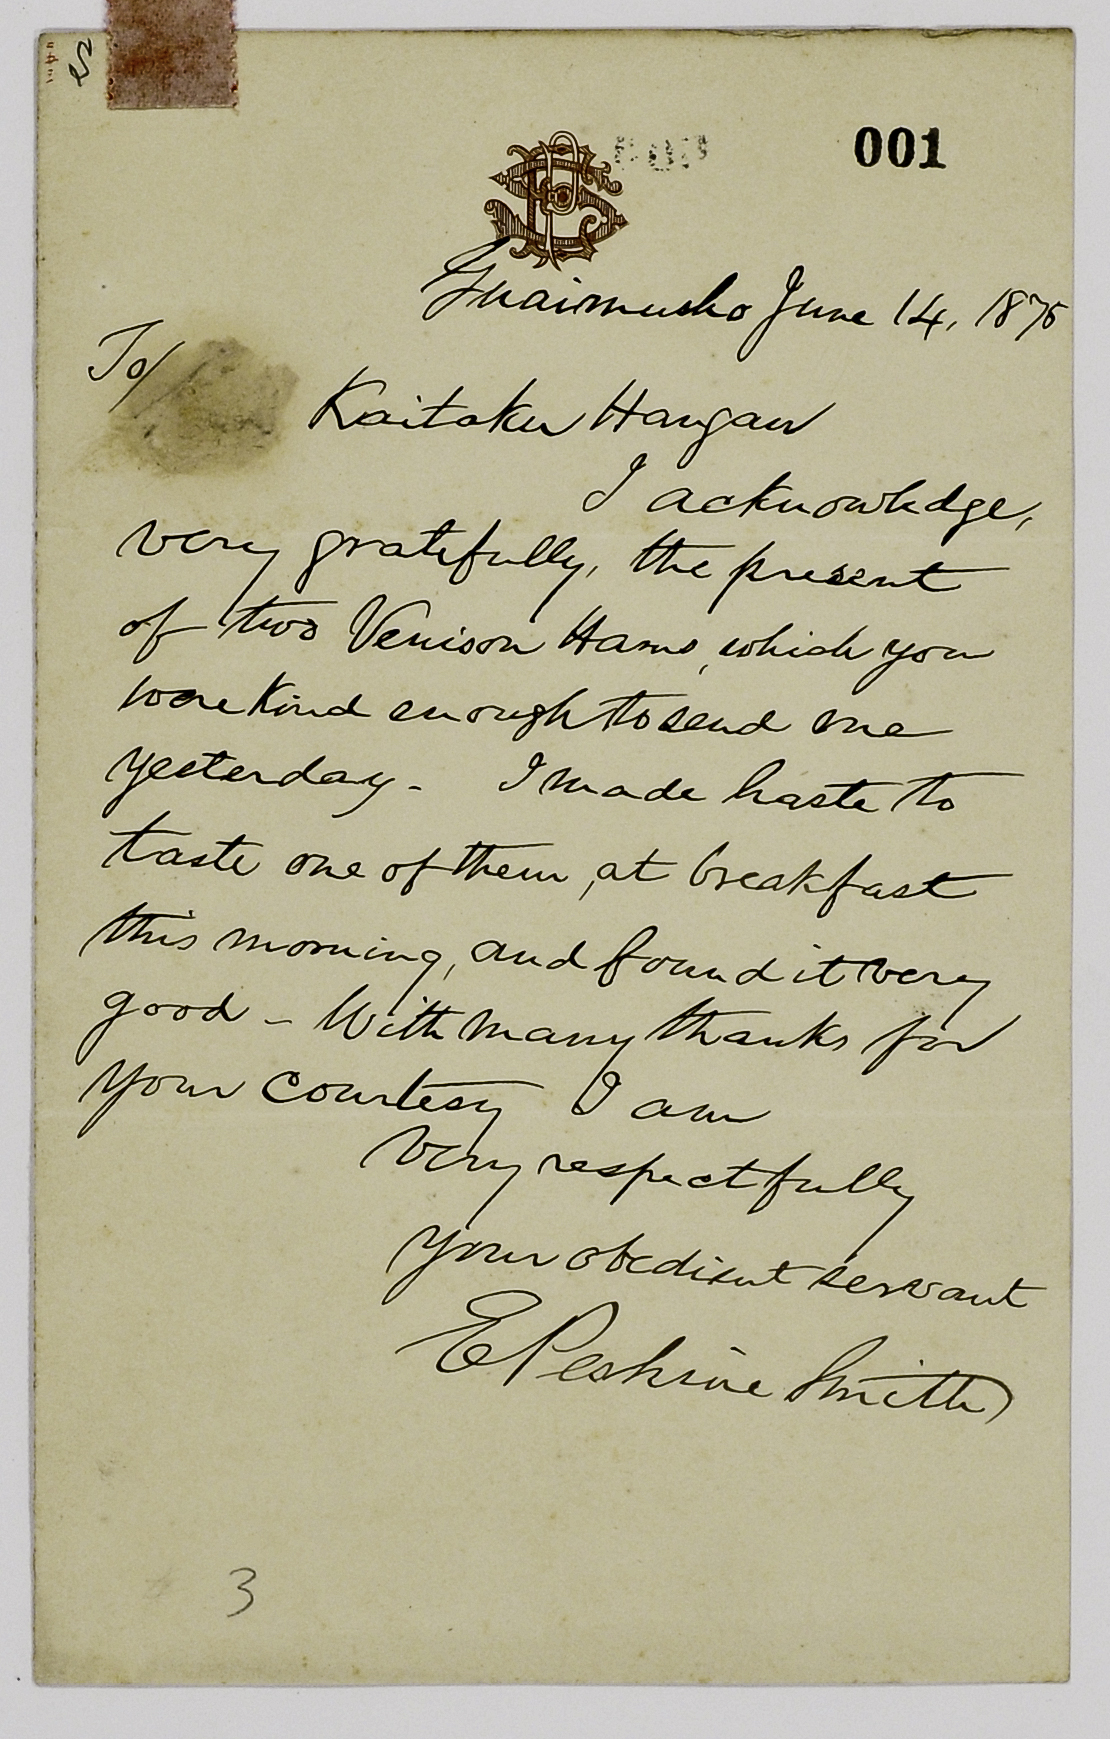 001
Guaimusho June 14, 1875
To/
Kaitaku Hangan
I acknowledge,
very gratefully, the present
of two Venison Hams, which you
were kind enough to send me
yesterday - I made haste to
taste one of them, at breakfast
this morning, and found it very
good - With many thanks for
your courtesy I am
very respectfully
your obedient servant
E Peshine Smith
3